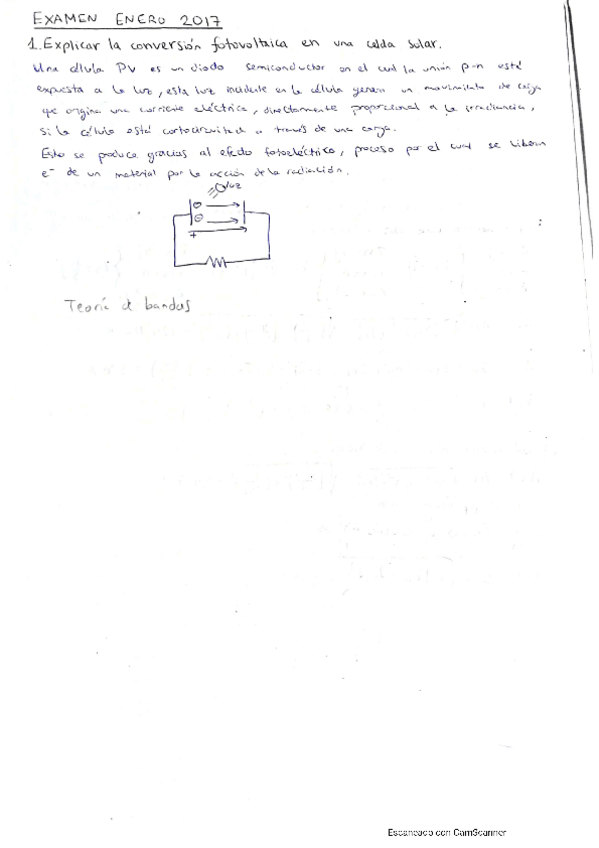 EXAMEN ENERO 2017
1. Explicar la conversión fotovoltaica en una celda solar.
Una célula PV es un diodo semiconductor en el cual la unión p-n está
expuesta a la luz, esta luz incidente en la célula genera un movimiento de carga
que origina una corriente eléctrica, directamente proporcional a la irradiancia,
si la célula está cortocircuitada a través de una carga.
Esto se produce gracias al efecto fotoeléctrico, proceso por el cual se liberan
e- de un material por la acción de la radiación.
luz
Teoría d bandas
Escaneado con CamScanner